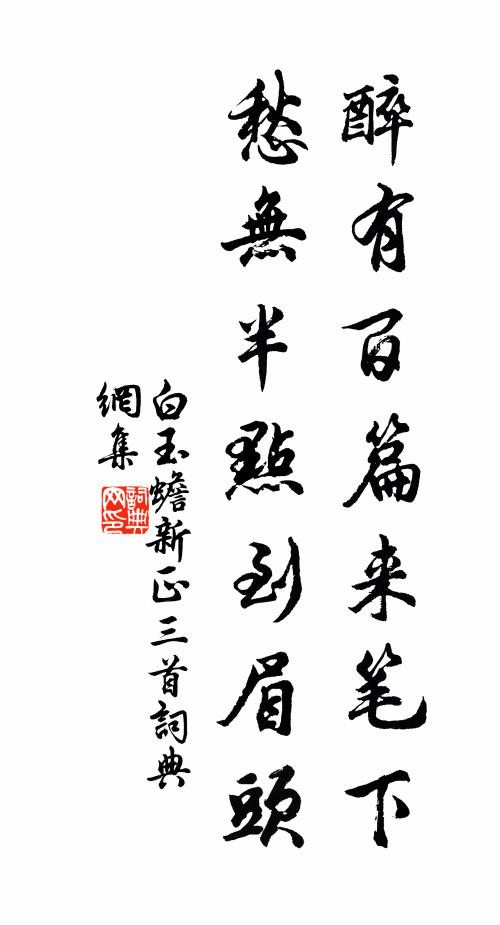 醉有百篇来笔下
愁無半點到眉頭
白玉蟾新正三首詞典
網集
詞典网印